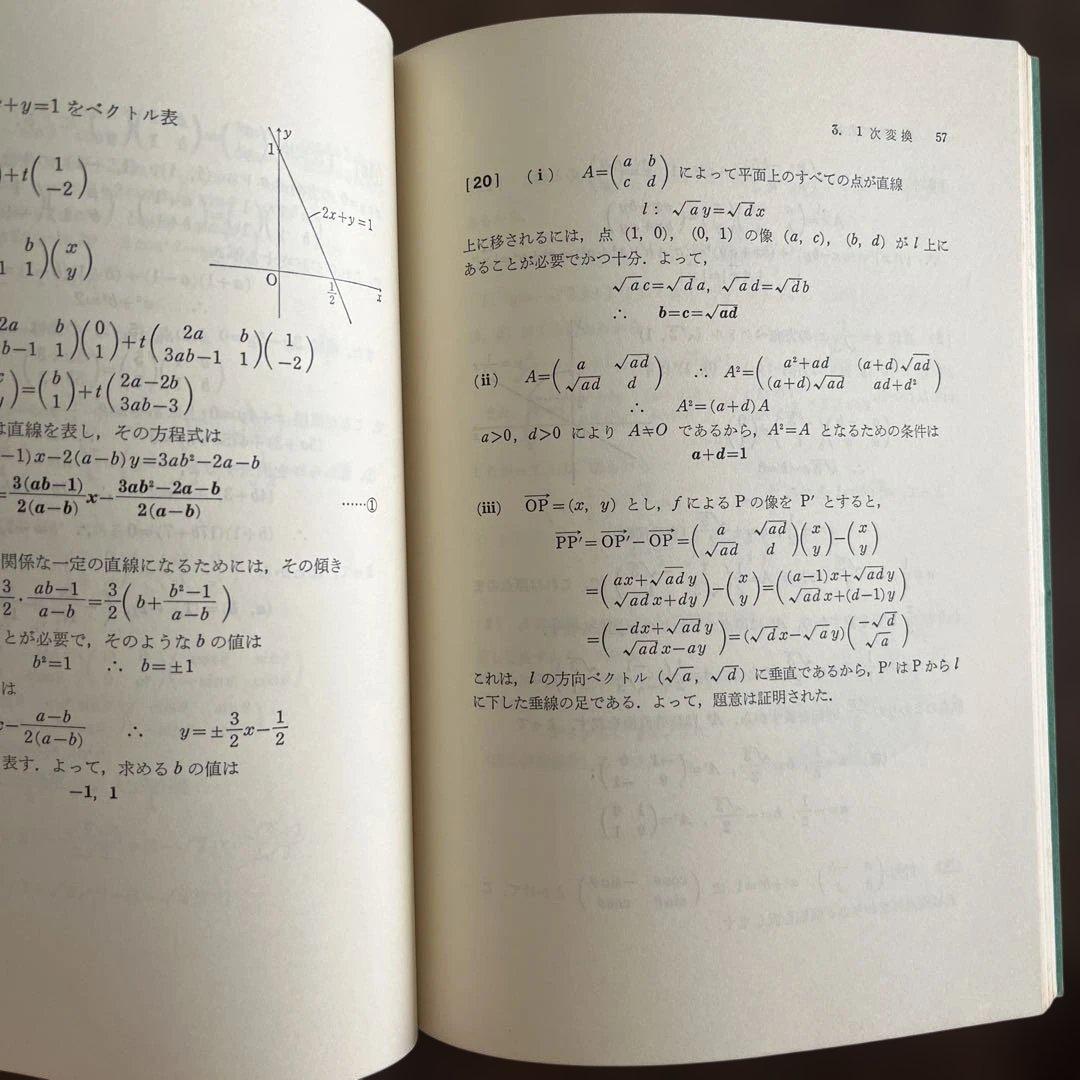 +y=1 をベクトル表
+t(1 -2)
y
1
2x+y=1
O
1/2
x
b
1 1)(x y)
2a b
b-1 1)(0 1)+t(2a b 3ab-1 1)(1 -2)
)=(b 1)+t(2a-2b 3ab-3)
直線を表し，その方程式は
-1)x-2(a-b)y=3ab²-2a-b
=3(ab-1)/2(a-b) x-(3ab²-2a-b)/2(a-b) ……①
関係な一定の直線になるためには，その傾き
3/2・(ab-1)/(a-b)=3/2(b+(b²-1)/(a-b))
とが必要で，そのような b の値は
b²=1 ∴ b=±1
は
-(a-b)/2(a-b) ∴ y=±3/2x-1/2
表す．よって，求める b の値は
-1, 1
3. 1 次変換 57
[20] (i) A=(a b c d) によって平面上のすべての点が直線
l : √a y=√d x
上に移されるには，点 (1, 0)，(0, 1) の像 (a, c)，(b, d) が l 上に
あることが必要でかつ十分．よって，
√a c=√d a, √a d=√d b
∴ b=c=√ad
(ii) A=(a √ad √ad d) ∴ A²=(a²+ad (a+d)√ad (a+d)√ad ad+d²)
∴ A²=(a+d)A
a>0, d>0 により A≠O であるから，A²=A となるための条件は
a+d=1
(iii) OP→=(x, y) とし，f による P の像を P′ とすると，
PP′→=OP′→-OP→=(a √ad √ad d)(x y)-(x y)
=(ax+√ad y √ad x+dy)-(x y)=((a-1)x+√ad y √ad x+(d-1)y)
=(-dx+√ad y √ad x-ay)=(√d x-√a y)(-√d √a)
これは，l の方向ベクトル (√a, √d) に垂直であるから，P′ は P から l
に下した垂線の足である．よって，題意は証明された．